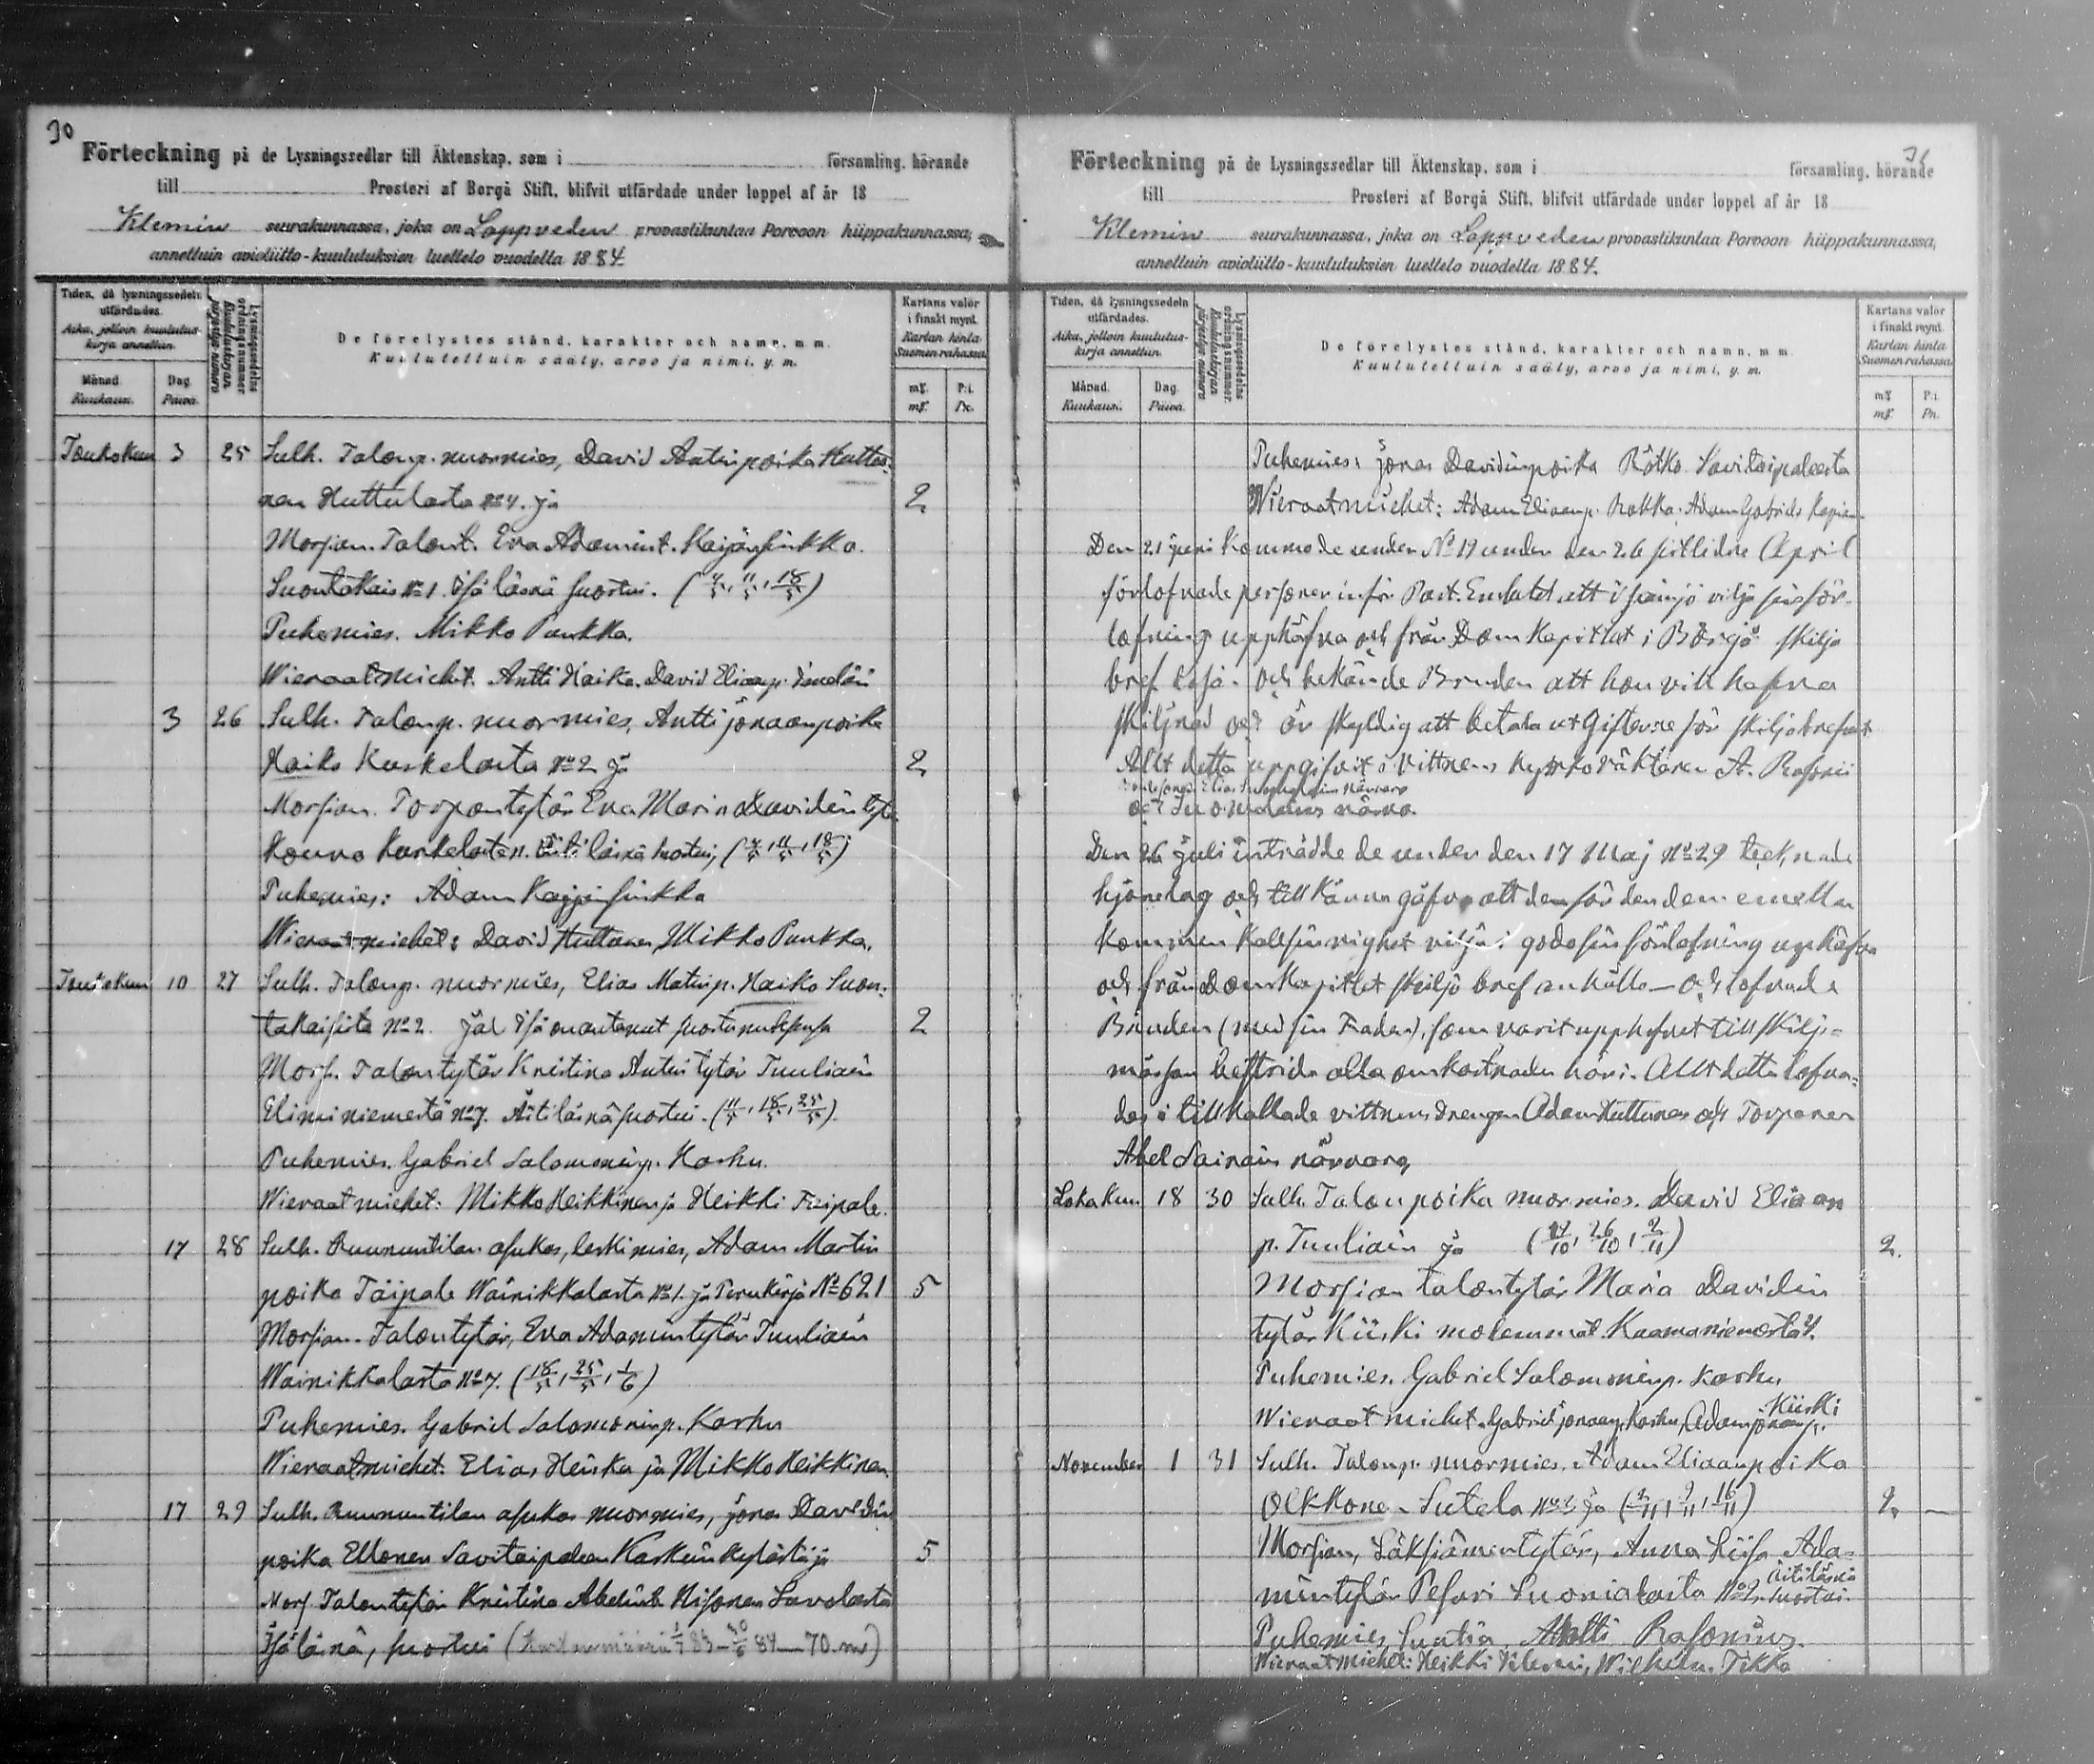 30
Förteckning på de Lysningssedlar till Äktenskap, som i församling, hörande
till Prosteri af Borgå Stift, blifvit utfärdade under loppet af år 18
Klemin seurakunnassa, joka on Lappveden provastikuntaa Porvoon hiippakunnassa,
annettuin avioliitto-kuulutuksien luettelo vuodelta 1884.
Tiden, då lysningssedeln utfärdades.
Aika, jolloin kuulutuskirja annettiin.
Månad. Kuukausi.
Dag. Päivä.
Lysningssedelns ordningsnummer.
Kuulutuskirjan järjestys-numero
De förelystes stånd, karakter och namn, m. m.
Kuulutettuin sääty, arvo ja nimi, y. m.
Kartans valör i finskt mynt.
Kartan hinta Suomen rahassa.
mk. Pi.
mk. Pn.
Toukokuu 3 25 Sulh. Talonp. nuormies, David Antinpoika Huttu-
nen Huttulasta No 4. ja 2
Morsian. Talont. Eva Adamint. Kaijansinkko.
Suontakais No 1. Isä läsnä suostui. (4/5, 11/5, 18/5)
Puhemies. Mikko Punkka.
Wieraatmiehet. Antti Haiko. David Eliaanp.
3 26 Sulh. Talonp. nuormies, Antti Jonaanpoika
Haiko Kuskelasta No 2 ja 2
Morsian. Torpantytär Eva Maria Davidin tytr
Kouvo läsnä suostui, (4/5, 11/5, 18/5)
Puhemies: Adam Kaijansinkko
Wieraatmiehet: David Huttunen, Mikko Punkka.
Toukokuu 10 27 Sulh. Talonp. nuormies, Elias Matinp. Haiko Suon-
takaisista No 2. 2
Mors. Talontytär Kristina Antin tytär Tuuliain
Eliminiemestä No 7. Äiti läsnä suostui. (11/5, 18/5, 25/5).
Puhemies. Gabriel Salomoninp. Karhu.
Wieraatmiehet: Mikko Heikkinen ja Heikki Taipale.
17 28 Sulh. Ruununtilan asukas, leskimies, Adam Martin
poika Taipale Wainikkalasta No 1. ja Perukirja No 621 5
Morsian. Talontytär, Eva Adamintytär Tuuliain
Wainikkalasta No 7. (18/5, 25/5, 1/6)
Puhemies. Gabriel Salomoninp. Karhu
Wieraatmiehet. Elias Heiska ja Mikko Heikkinen.
17 29 Sulh. Ruununtilan asukas nuormies, Jonas Davidin
poika Ellonen Savitaipaleen Kaskein kylästä ja 5
Mors. Talontytär Kristina Abelint. Hisonen Savolasta
Isä läsnä, suostui
31
Förteckning på de Lysningssedlar till Äktenskap, som i församling, hörande
till Prosteri af Borgå Stift, blifvit utfärdade under loppet af år 18
Klemin seurakunnassa, joka on Lappveden provastikuntaa Porvoon hiippakunnassa,
annettuin avioliitto-kuulutuksien luettelo vuodelta 1884.
Tiden, då lysningssedeln utfärdades.
Aika, jolloin kuulutuskirja annettiin.
Månad. Kuukausi.
Dag. Päivä.
Lysningssedelns ordningsnummer.
Kuulutuskirjan järjestys-numero
De förelystes stånd, karakter och namn, m. m.
Kuulutettuin sääty, arvo ja nimi, y. m.
Kartans valör i finskt mynt.
Kartan hinta Suomen rahassa.
mk. Pi.
mk. Pn.
Puhemies: Jonas Davidinpoika Rötkö Savitaipaleesta
Wieraatmiehet: Adam Eliaanp. Rokka. Adam Gabriels
Den 21 juni kommo de under No 19 under den 26 sistlidne April
förlofnade personer inför Past. Embetet att vilja sin för-
lofning upphäfva och från Dom Kapitlet i Borgå skilje
bref lösa. och bekände Bruden att hon vill hafva
skilnad och är skyldig att betala
Allt detta uppgifvit i vittnens kyrkoväktaren A. Rasonii
närvaro.
Den 26 Juli inträdde de under den 17 Maj No 29 tecknade
hjonelag och tillkänna gåfvo att de för den dem emellan
kommen kallsinnighet vilja i godo sin förlofning upphäfva
och från Domkapitlet skiljo bref anhålla — och lofvade
Bruden (med sin Fader), som varit upphofvet till skilje-
mässan bestrida alla omkostnader häri. Allt detta lofva-
des i tillkallade vittnens drengen Adam Huttunen och Torparen
Abel Sairains närvaro,
Lokakuu 18 30 Sulh. Talonpoika nuormies. David Eliaan
p. Tuuliain ja (19/10, 26/10, 2/11) 2.
Morsian talontytär Maria Davidin
tytär Kiiski molemmat Kaamaniemestä 4.
Puhemies. Gabriel Salomoninp. Karhu
Wieraatmiehet. Gabriel Jonaanp. Karhu, Adam Jonaanp. Kiiski
November 1 31 Sulh. Talonp. nuormies. Adam Eliaanpoika
Olkkone Sutela No 3 ja (2/11, 9/11, 16/11) 2. —
Morsian, Läksiämentytär, Anna Liisa Ada-
mintytär Pesari Suonialasta No 2. Äiti läsnä suostui.
Puhemies, Suntia. Antti Rasonius.
Wieraatmiehet: Heikki Wilhelm. Tikka